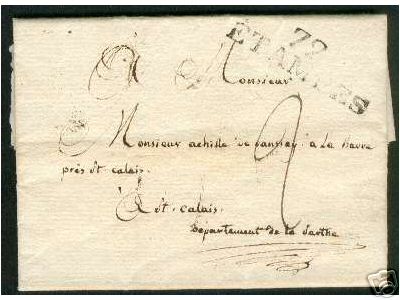 72
ÉTAMPES
A Monsieur
Monsieur achille de a la havre
près st. calais.
A st. calais.
Département de la Sarthe
2